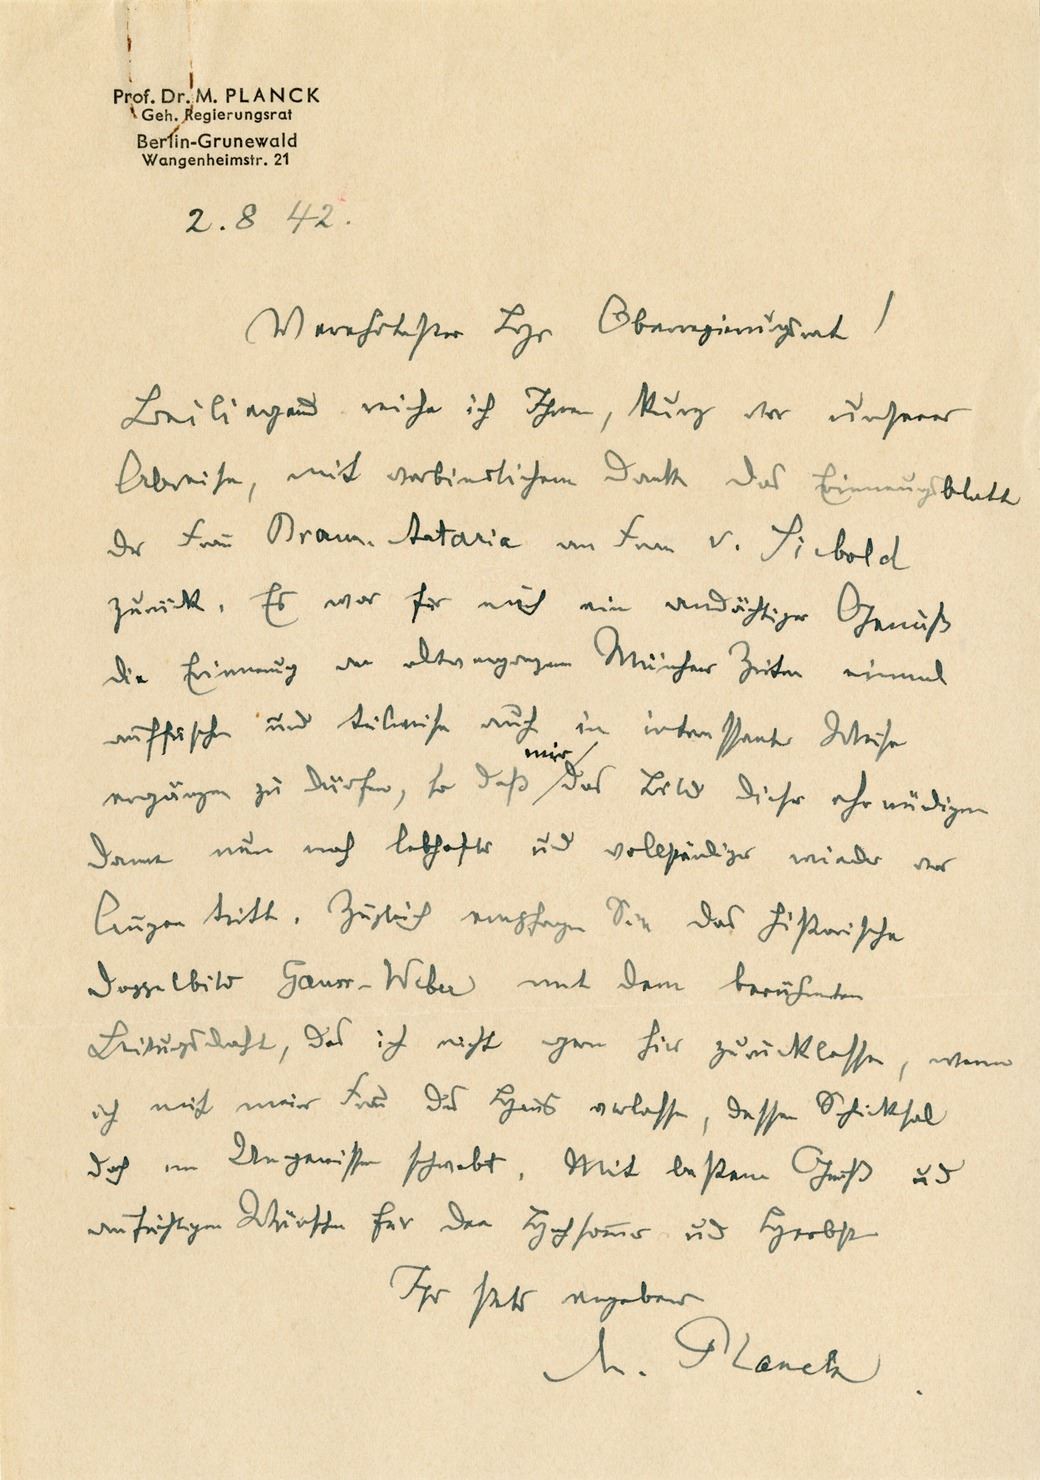 Prof. Dr. M. PLANCK
Geh. Regierungsrat
Berlin-Grunewald
Wangenheimstr. 21
2.8 42.
Verehrtester Herr Oberregierungsrat!
Beiliegend reiche ich Ihnen, kurz vor unserer
Abreise, mit verbindlichem Dank das Erinnerungsblatt
der Frau Braun-Artaria an Frau v. Siebold
zurück. Es war für mich ein andächtiger Genuß
die Erinnerung an altvergangene Münchner Zeiten einmal
auffrischen und teilweise auch in interessanter Weise
mir
ergänzen zu dürfen, so daß das Bild dieser ehrwürdigen
Dame nun noch lebhafter und vollständiger wieder vor
Augen tritt. Zugleich empfangen Sie das historische
Doppelbild Gauss-Weber mit dem berühmten
Leitungsdraht, das ich nicht gern hier zurücklasse, wenn
ich mit meiner Frau das Haus verlasse, dessen Schicksal
doch im Ungewissen schwebt. Mit bestem Gruß und
aufrichtigen Wünschen für den Hochsommer und Herbst
Ihr stets ergebener
M. Planck.